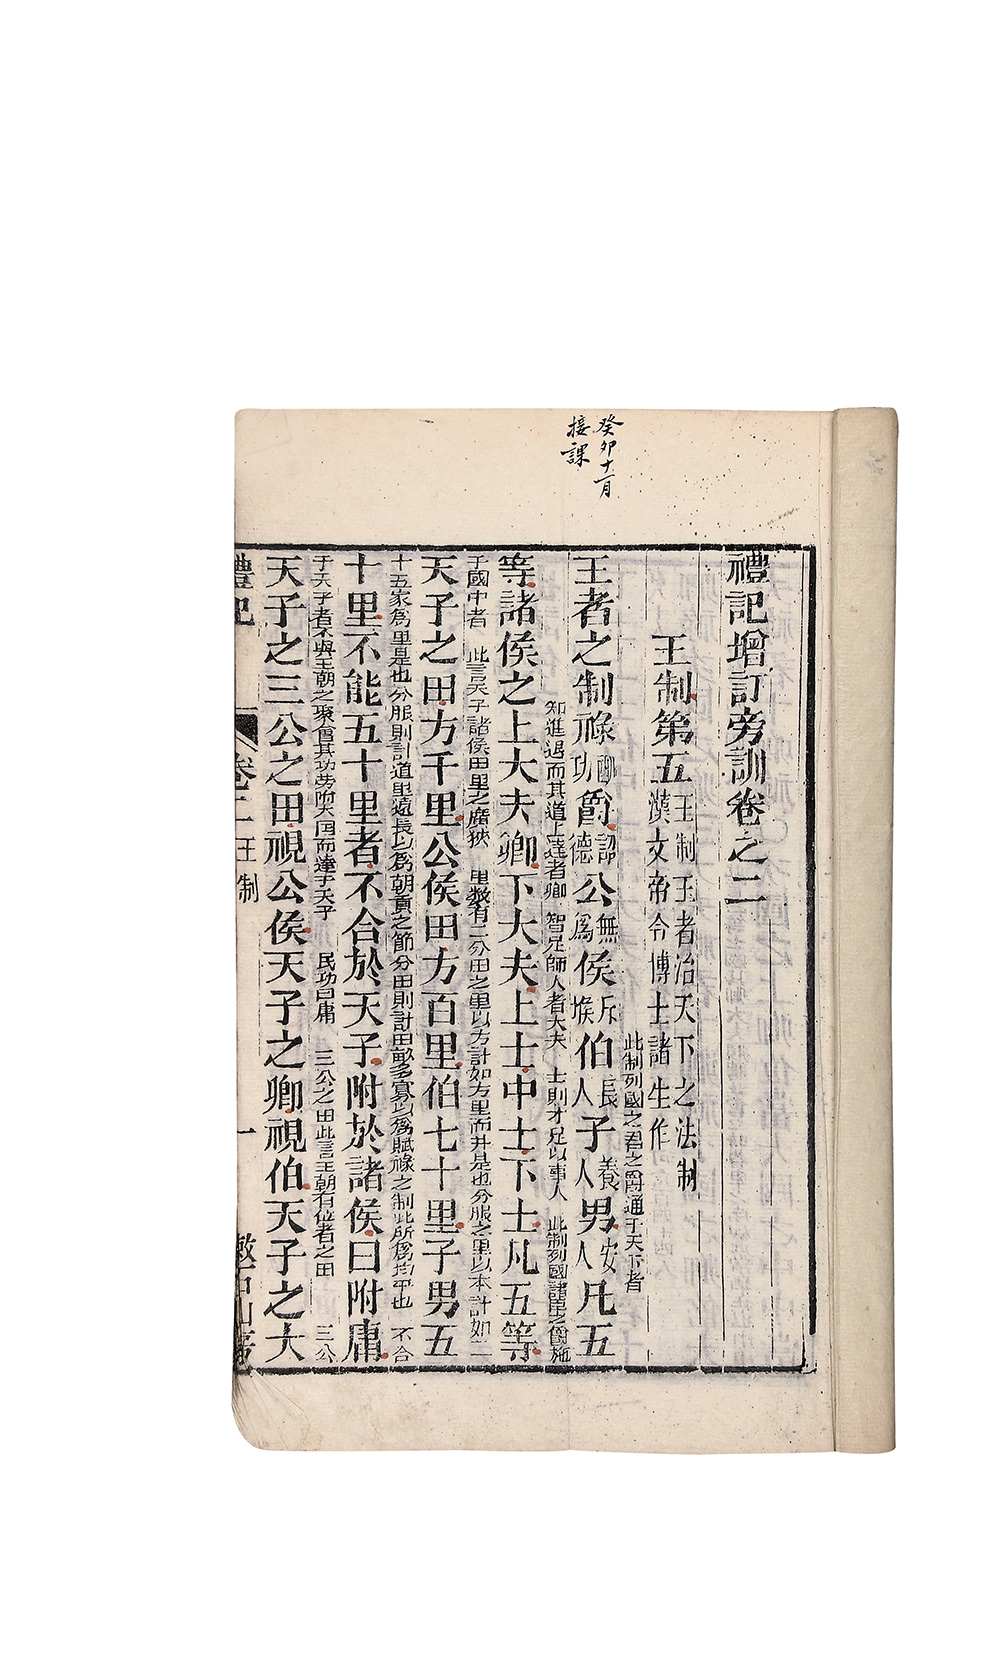 癸卯十一月
接課
禮記增訂旁訓卷之二
王制第五
王制王者治天下之法制
漢文帝令博士諸生作
此制列國之君之爵通于天下者
王者之制祿爵公侯伯子男凡五
知進退而其道上達者卿 智足師人者大夫 士則才足以事人 此制列國諸臣之爵施
等諸侯之上大夫卿下大夫上士中士下士凡五等
于國中者 此言天子諸侯田里之廣狹 里數有二分田之里以方計如方里而井是也分服之里以本計如二
天子之田方千里公侯田方百里伯七十里子男五
十五家為里是也分服則計道里遠長以為朝貢之節分田則計田畝多寡以為賦祿之制此所為均平也 不合
十里不能五十里者不合於天子附於諸侯曰附庸
于天子者不與王朝之聚會其功勞附大國而達于天子 民功曰庸 三公之田此言王朝有位者之田 三公
天子之三公之田視公侯天子之卿視伯天子之大
禮記 卷二 王制 一